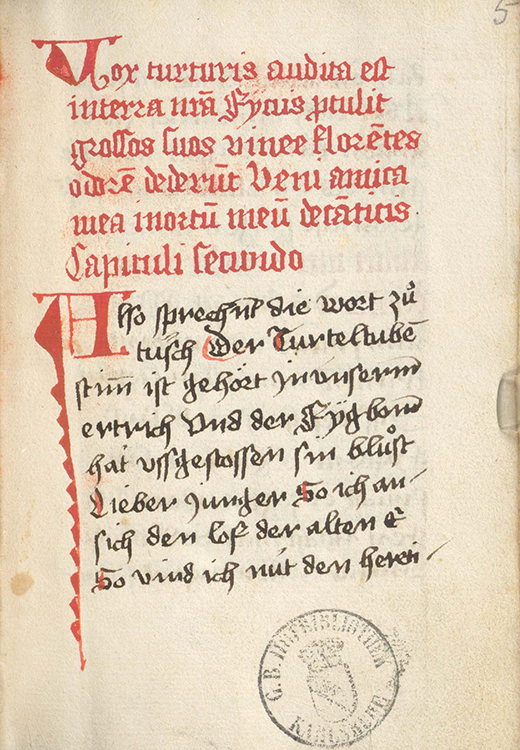 5
Vox turturis audita est
interra nrā Fycus ꝓtulit
grossos suos vinee florētes
odorē dederūt Veni amica
mea inortū meū decāticis
Capituli secundo
Also sprechnt die wort zů
tútsch Der Turteltubē
stim̄ ist gehört Jn vnserm
ertrich Vnd der Fÿgbom
hat vssgestossen sin blůst
Lieber Junger So ich an-
sich den lof der alten E
So vind ich nút den
G. B. HOFBIBLIOTHEK
KARLSRUHE